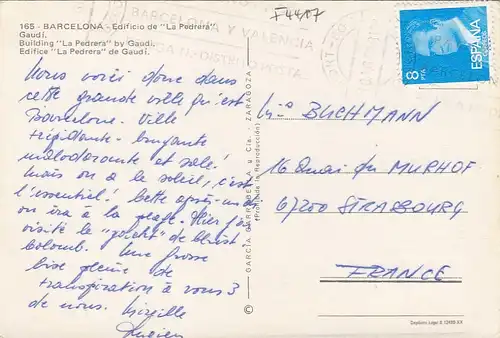 165 - BARCELONA - Edificio de "La Pedrera"
Gaudí.
Building "La Pedrera" by Gaudi.
Edifice "La Pedrera" de Gaudí.
F4407
BARCELONA Y VALENCIA
8 PTA
ESPAÑA
CORREOS
Nous voici donc dans
cette grande ville qu'est
Barcelone. Ville
trépidante - bruyante
malodorante et sale!
mais on a le soleil, c'est
l'essentiel! Cette après-midi
on ira à la plage. Hier j'ai
visité le "yacht" de Christ.
Colomb. Une grosse
bise pleine de
transpiration à vous 3
de nous. Mireille
Lucien
GARCIA GARRABELLA y Cia. - ZARAGOZA
(Prohibida la Reproducción)
©
BUCHMANN
16 Quai du MURHOF
67200 STRASBOURG
FRANCE